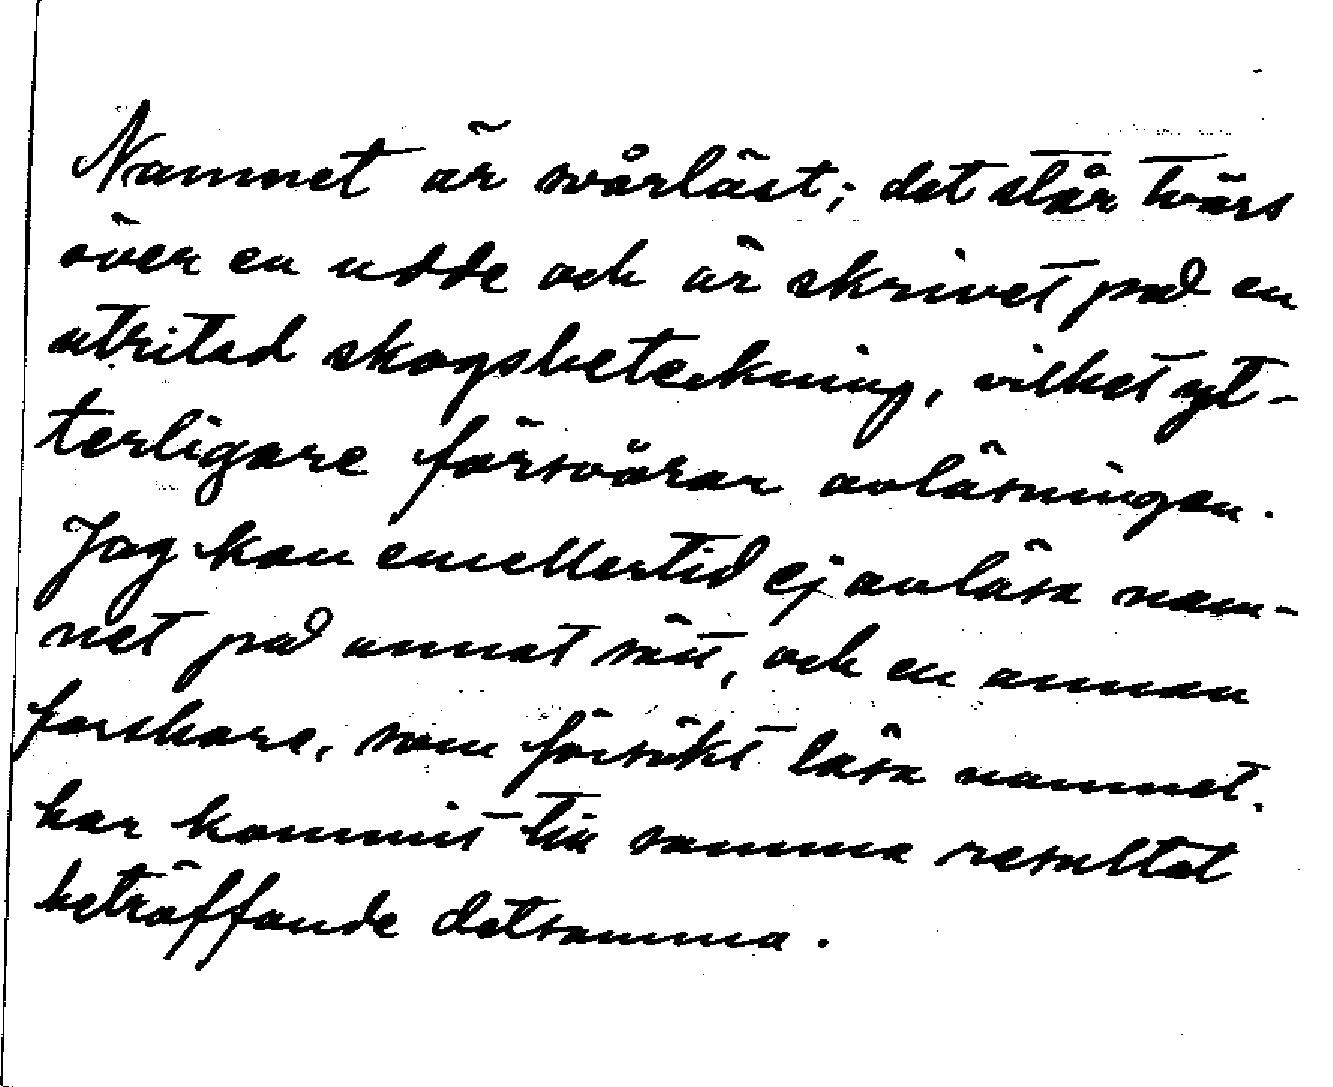 Namnet är svårläst; det står tvärs
över en udde och är skrivet på en
utritad skogsbeteckning, vilket yt-
terligare försvårar avläsningen.
Jag kan emellertid ej avläsa nam-
net på annat sätt, och en annan
forskare, som försökt läsa namnet,
har kommit till samma resultat
beträffande detsamma.